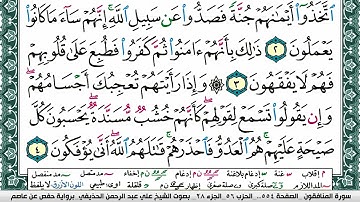 ٱتَّخَذُوٓا۟ أَيْمَٰنَهُمْ جُنَّةً فَصَدُّوا۟ عَن سَبِيلِ ٱللَّهِ إِنَّهُمْ سَآءَ مَا كَانُوا۟
يَعْمَلُونَ ٢ ذَٰلِكَ بِأَنَّهُمْ ءَامَنُوا۟ ثُمَّ كَفَرُوا۟ فَطُبِعَ عَلَىٰ قُلُوبِهِمْ
فَهُمْ لَا يَفْقَهُونَ ٣ ۞ وَإِذَا رَأَيْتَهُمْ تُعْجِبُكَ أَجْسَامُهُمْ
وَإِن يَقُولُوا۟ تَسْمَعْ لِقَوْلِهِمْ كَأَنَّهُمْ خُشُبٌ مُّسَنَّدَةٌ يَحْسَبُونَ كُلَّ
صَيْحَةٍ عَلَيْهِمْ هُمُ ٱلْعَدُوُّ فَٱحْذَرْهُمْ قَٰتَلَهُمُ ٱللَّهُ أَنَّىٰ يُؤْفَكُونَ ٤
سورة المنافقون الصفحة ٥٥٤ الجزء ٢٨ بصوت الشيخ علي عبد الرحمن الحذيفي برواية حفص عن عاصم